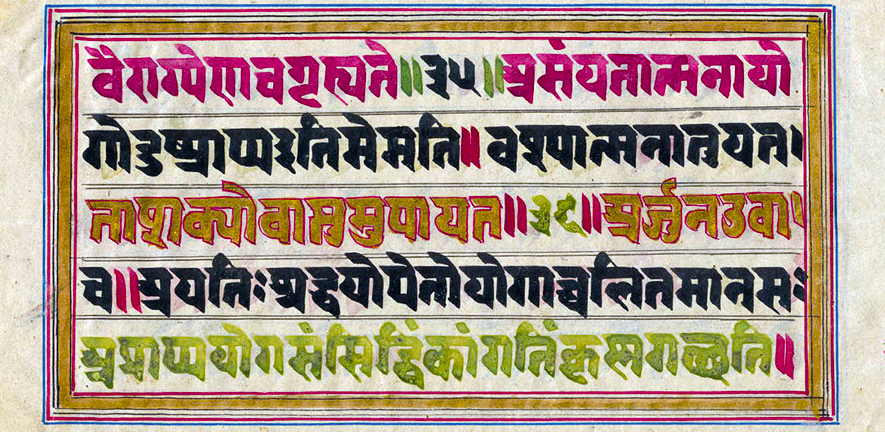 वैराग्येणचगृह्यते॥३५॥असंयतात्मनायो
गोदुष्प्रापइतिमेमतिः॥वश्यात्मनातुयत
ताशक्योवाप्तुमुपायतः॥३६॥अर्जुनउवा
च॥अयतिःश्रद्धयोपेतोयोगाच्चलितमानसः
अप्राप्ययोगसंसिद्धिंकांगतिंकृष्णगच्छति॥